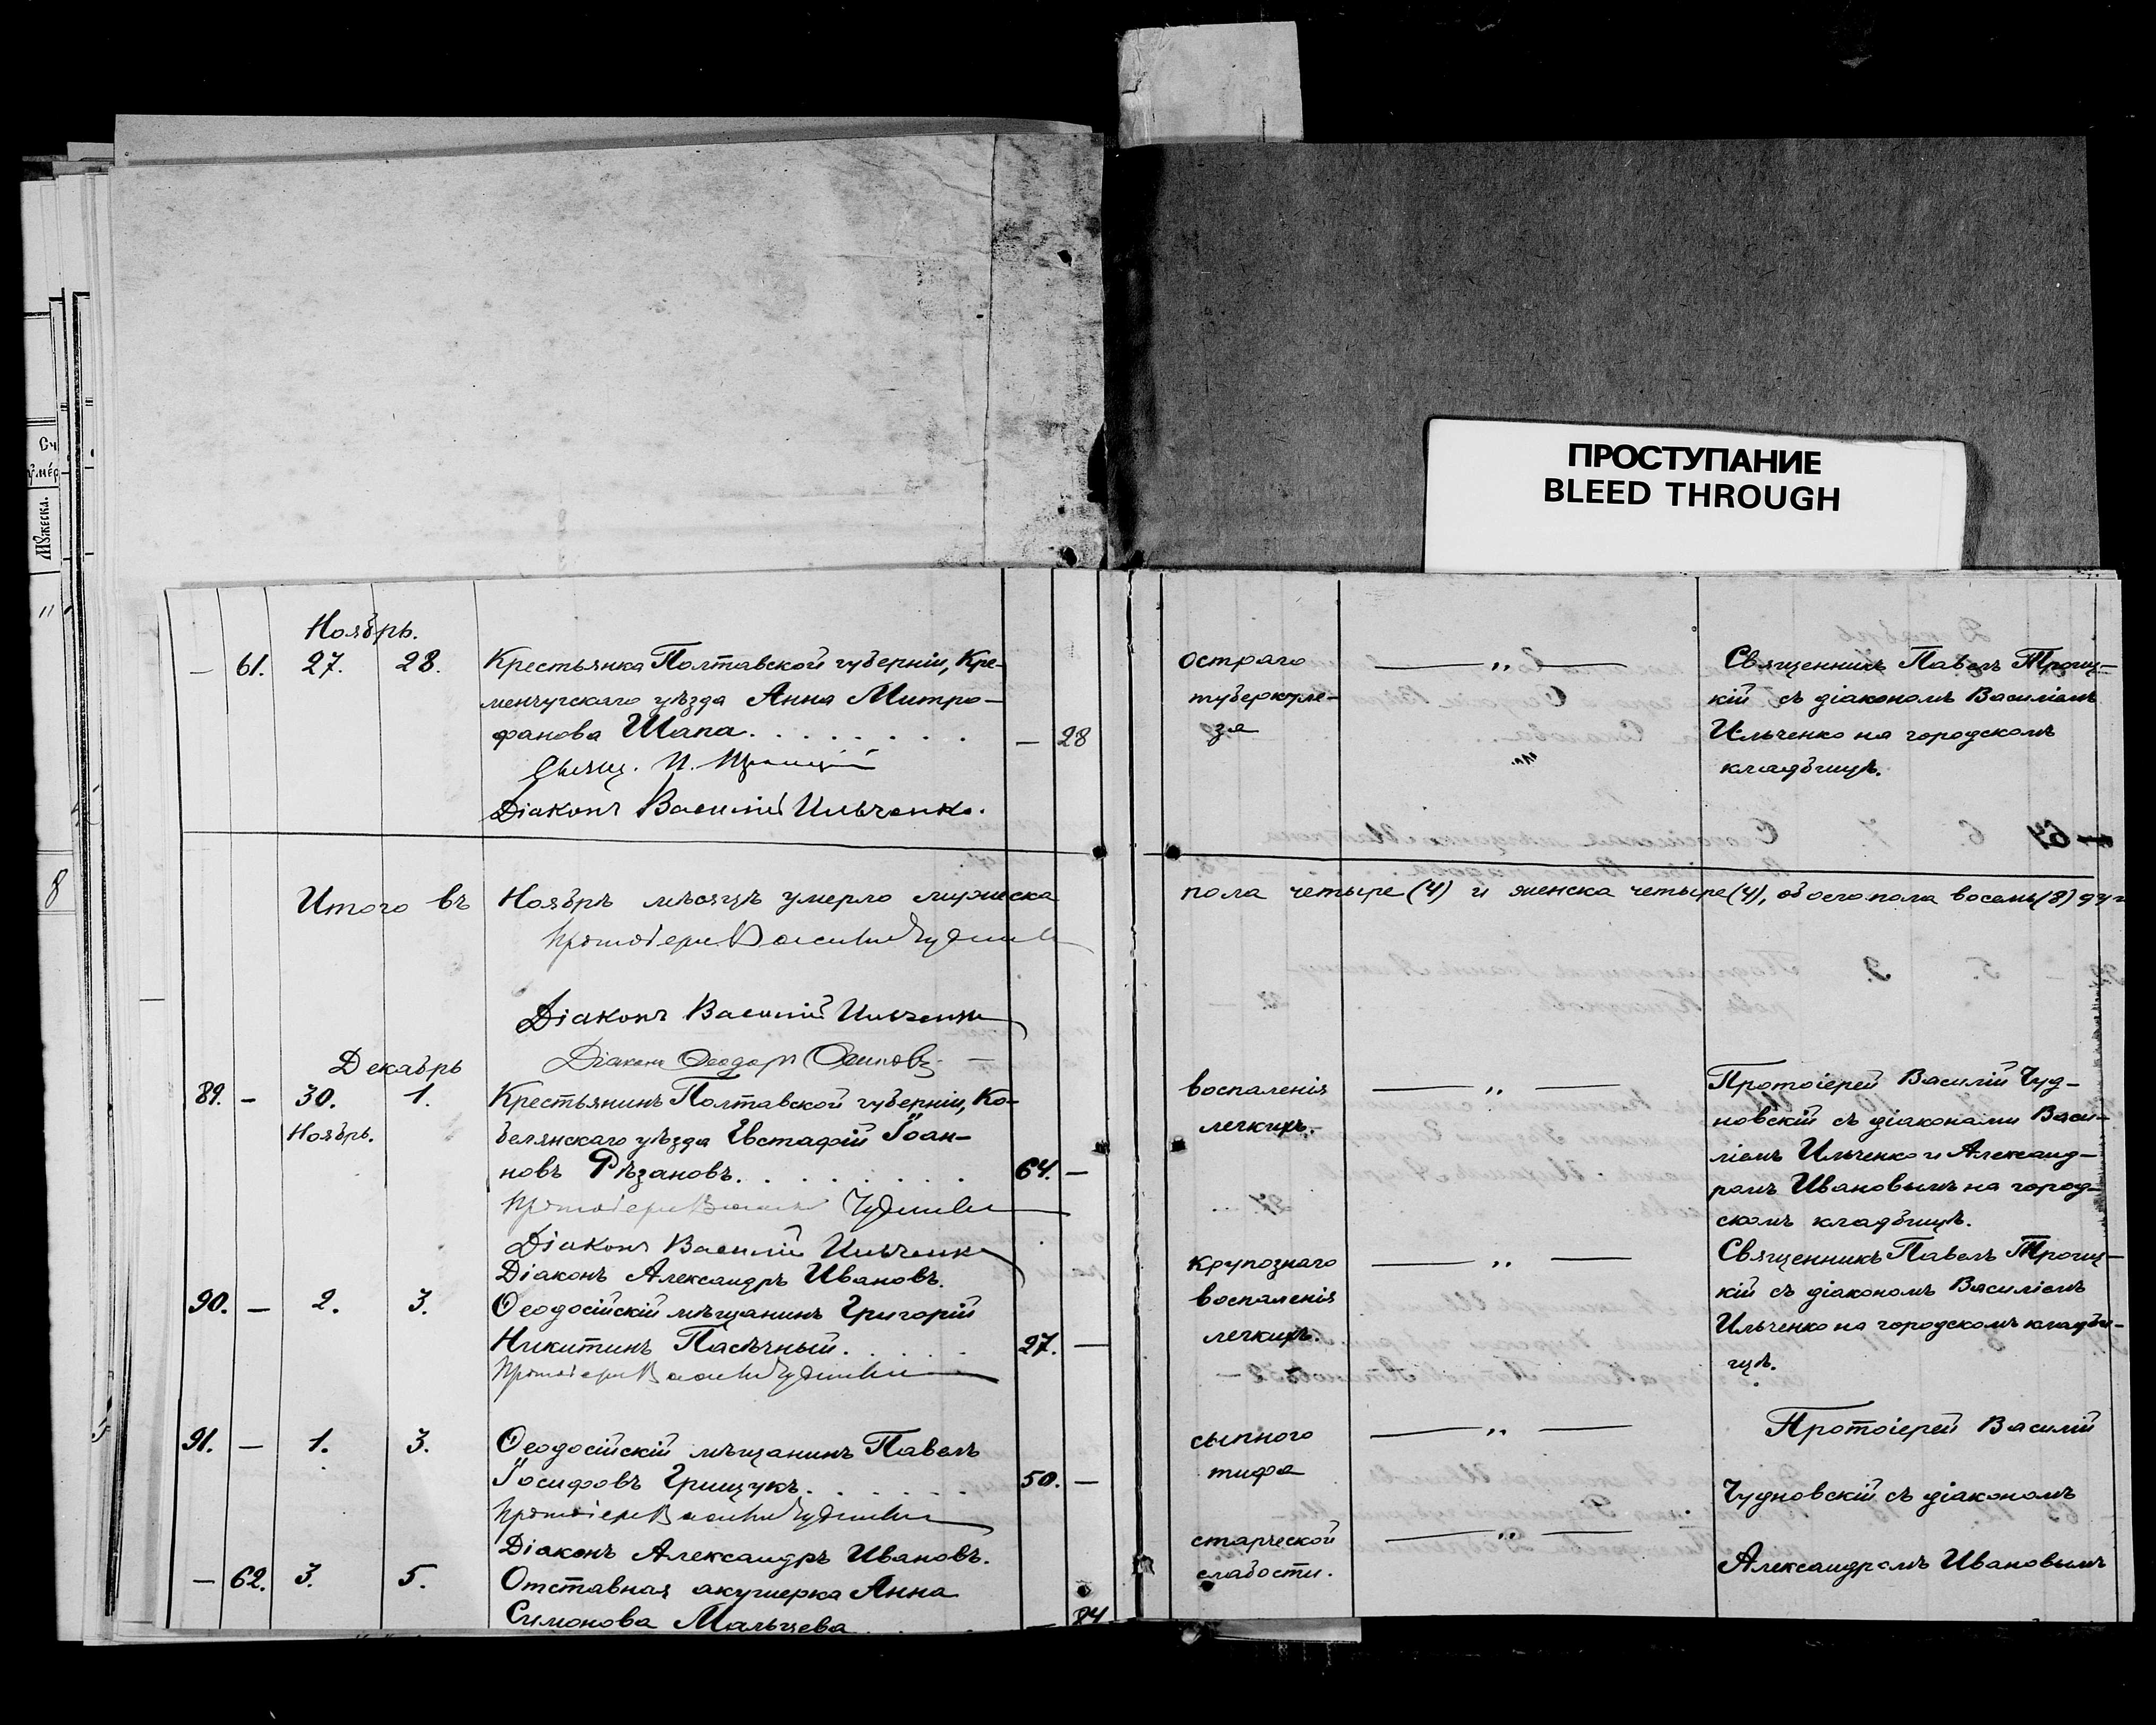 ПРОСТУПАНИЕ
BLEED THROUGH
Сч
умер
Мужеска.
11
8
Ноябрь.
— 61. 27. 28. Крестьянка Полтавской губернiи, Кре-
менчугскаго уѣзда Анна Митро-
фанова Шапа. — 28
Свящ. П. Троицкiй
Дiаконъ Василiй Ильченко.
Остраго
туберкуле-
за
Священникъ Павелъ Троиц-
кiй съ дiакономъ Василiемъ
Ильченко на городскомъ
кладбищѣ.
Итого въ Ноябрѣ мѣсяцѣ умерло мужеска пола четыре (4) и женска четыре (4), обоего пола восемь (8) ду
Протоiерей Василiй Чудновскiй
Дiаконъ Василiй Ильченко
Дiаконъ Ѳеодоръ Осиповъ
Декабрь
89. — 30. 1. Крестьянинъ Полтавской губернiи, Ко-
Ноябрь. белянскаго уѣзда Евстафiй Iоан-
новъ Рѣзановъ. 64. —
Протоiерей Василiй Чудновскiй
Дiаконъ Василiй Ильченко
Дiаконъ Александръ Ивановъ.
воспаленiя
легкихъ.
Протоiерей Василiй Чуд-
новскiй съ дiаконами Васи-
лiемъ Ильченко и Александ-
ромъ Ивановымъ на город-
скомъ кладбищѣ.
90. — 2. 3. Ѳеодосiйскiй мѣщанинъ Григорiй
Никитинъ Пасѣчный. 27. —
Протоiерей Василiй Чудновскiй
крупознаго
воспаленiя
легкихъ.
Священникъ Павелъ Троиц-
кiй съ дiакономъ Василiемъ
Ильченко на городскомъ кладби-
щѣ.
91. — 1. 3. Ѳеодосiйскiй мѣщанинъ Павелъ
Iосифовъ Грищукъ. 50. —
Протоiерей Василiй Чудновскiй
Дiаконъ Александръ Ивановъ.
сыпного
тифа
Протоiерей Василiй
Чудновскiй съ дiакономъ
Александромъ Ивановымъ
— 62. 3. 5. Отставная акушерка Анна
Симонова Мальцева — 84
старческой
слабости.